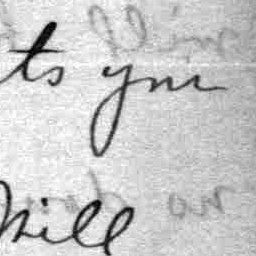 ts your
will